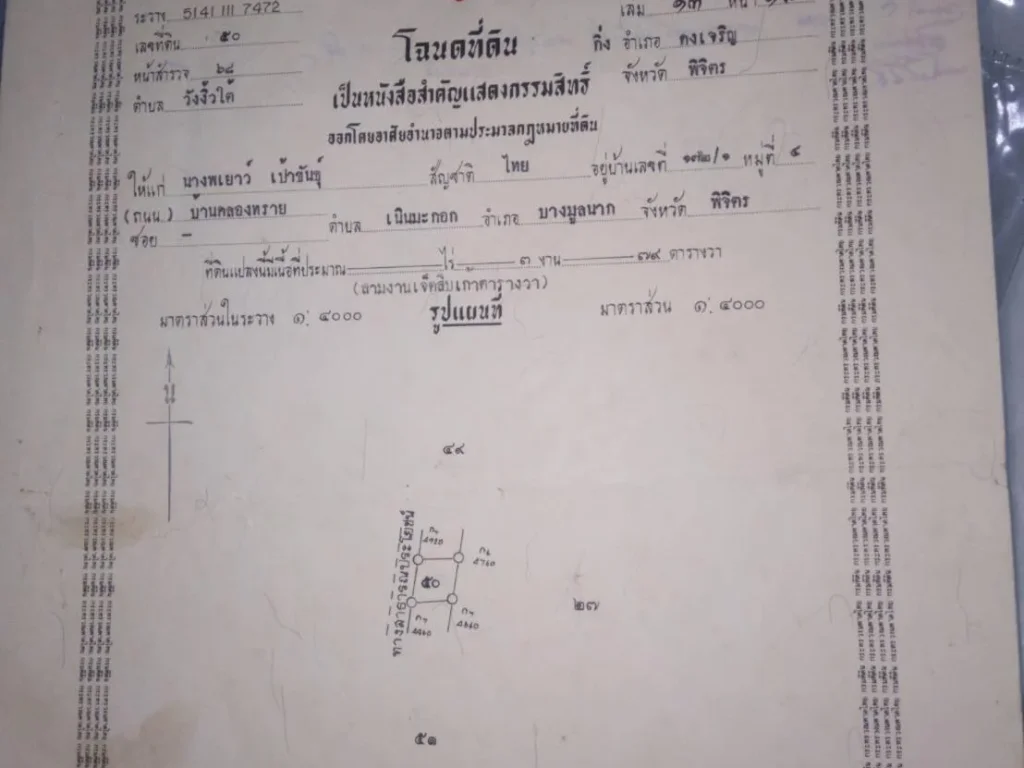 ระวาง 5141 III 7472
เล่ม ๑๓ หน้า
เลขที่ดิน ๕๐
โฉนดที่ดิน
กิ่ง อำเภอ ดงเจริญ
หน้าสำรวจ ๖๘
จังหวัด พิจิตร
ตำบล วังงิ้วใต้
เป็นหนังสือสำคัญแสดงกรรมสิทธิ์
ออกโดยอาศัยอำนาจตามประมวลกฎหมายที่ดิน
ให้แก่ นางพเยาว์ เป้าขันธุ์ สัญชาติ ไทย อยู่บ้านเลขที่ ๑๙๒/๑ หมู่ที่ ๔
(ถนน) บ้านคลองทราย ตำบล เนินมะกอก อำเภอ บางมูลนาก จังหวัด พิจิตร
ซอย –
ที่ดินแปลงนี้มีเนื้อที่ประมาณ ไร่ ๓ งาน ๗๙ ตารางวา
(สามงานเจ็ดสิบเก้าตารางวา)
มาตราส่วนในระวาง ๑:๔๐๐๐ รูปแผนที่ มาตราส่วน ๑:๔๐๐๐
น
๔๙
ทางสาธารณประโยชน์
๕๐
๒๗
๕๑